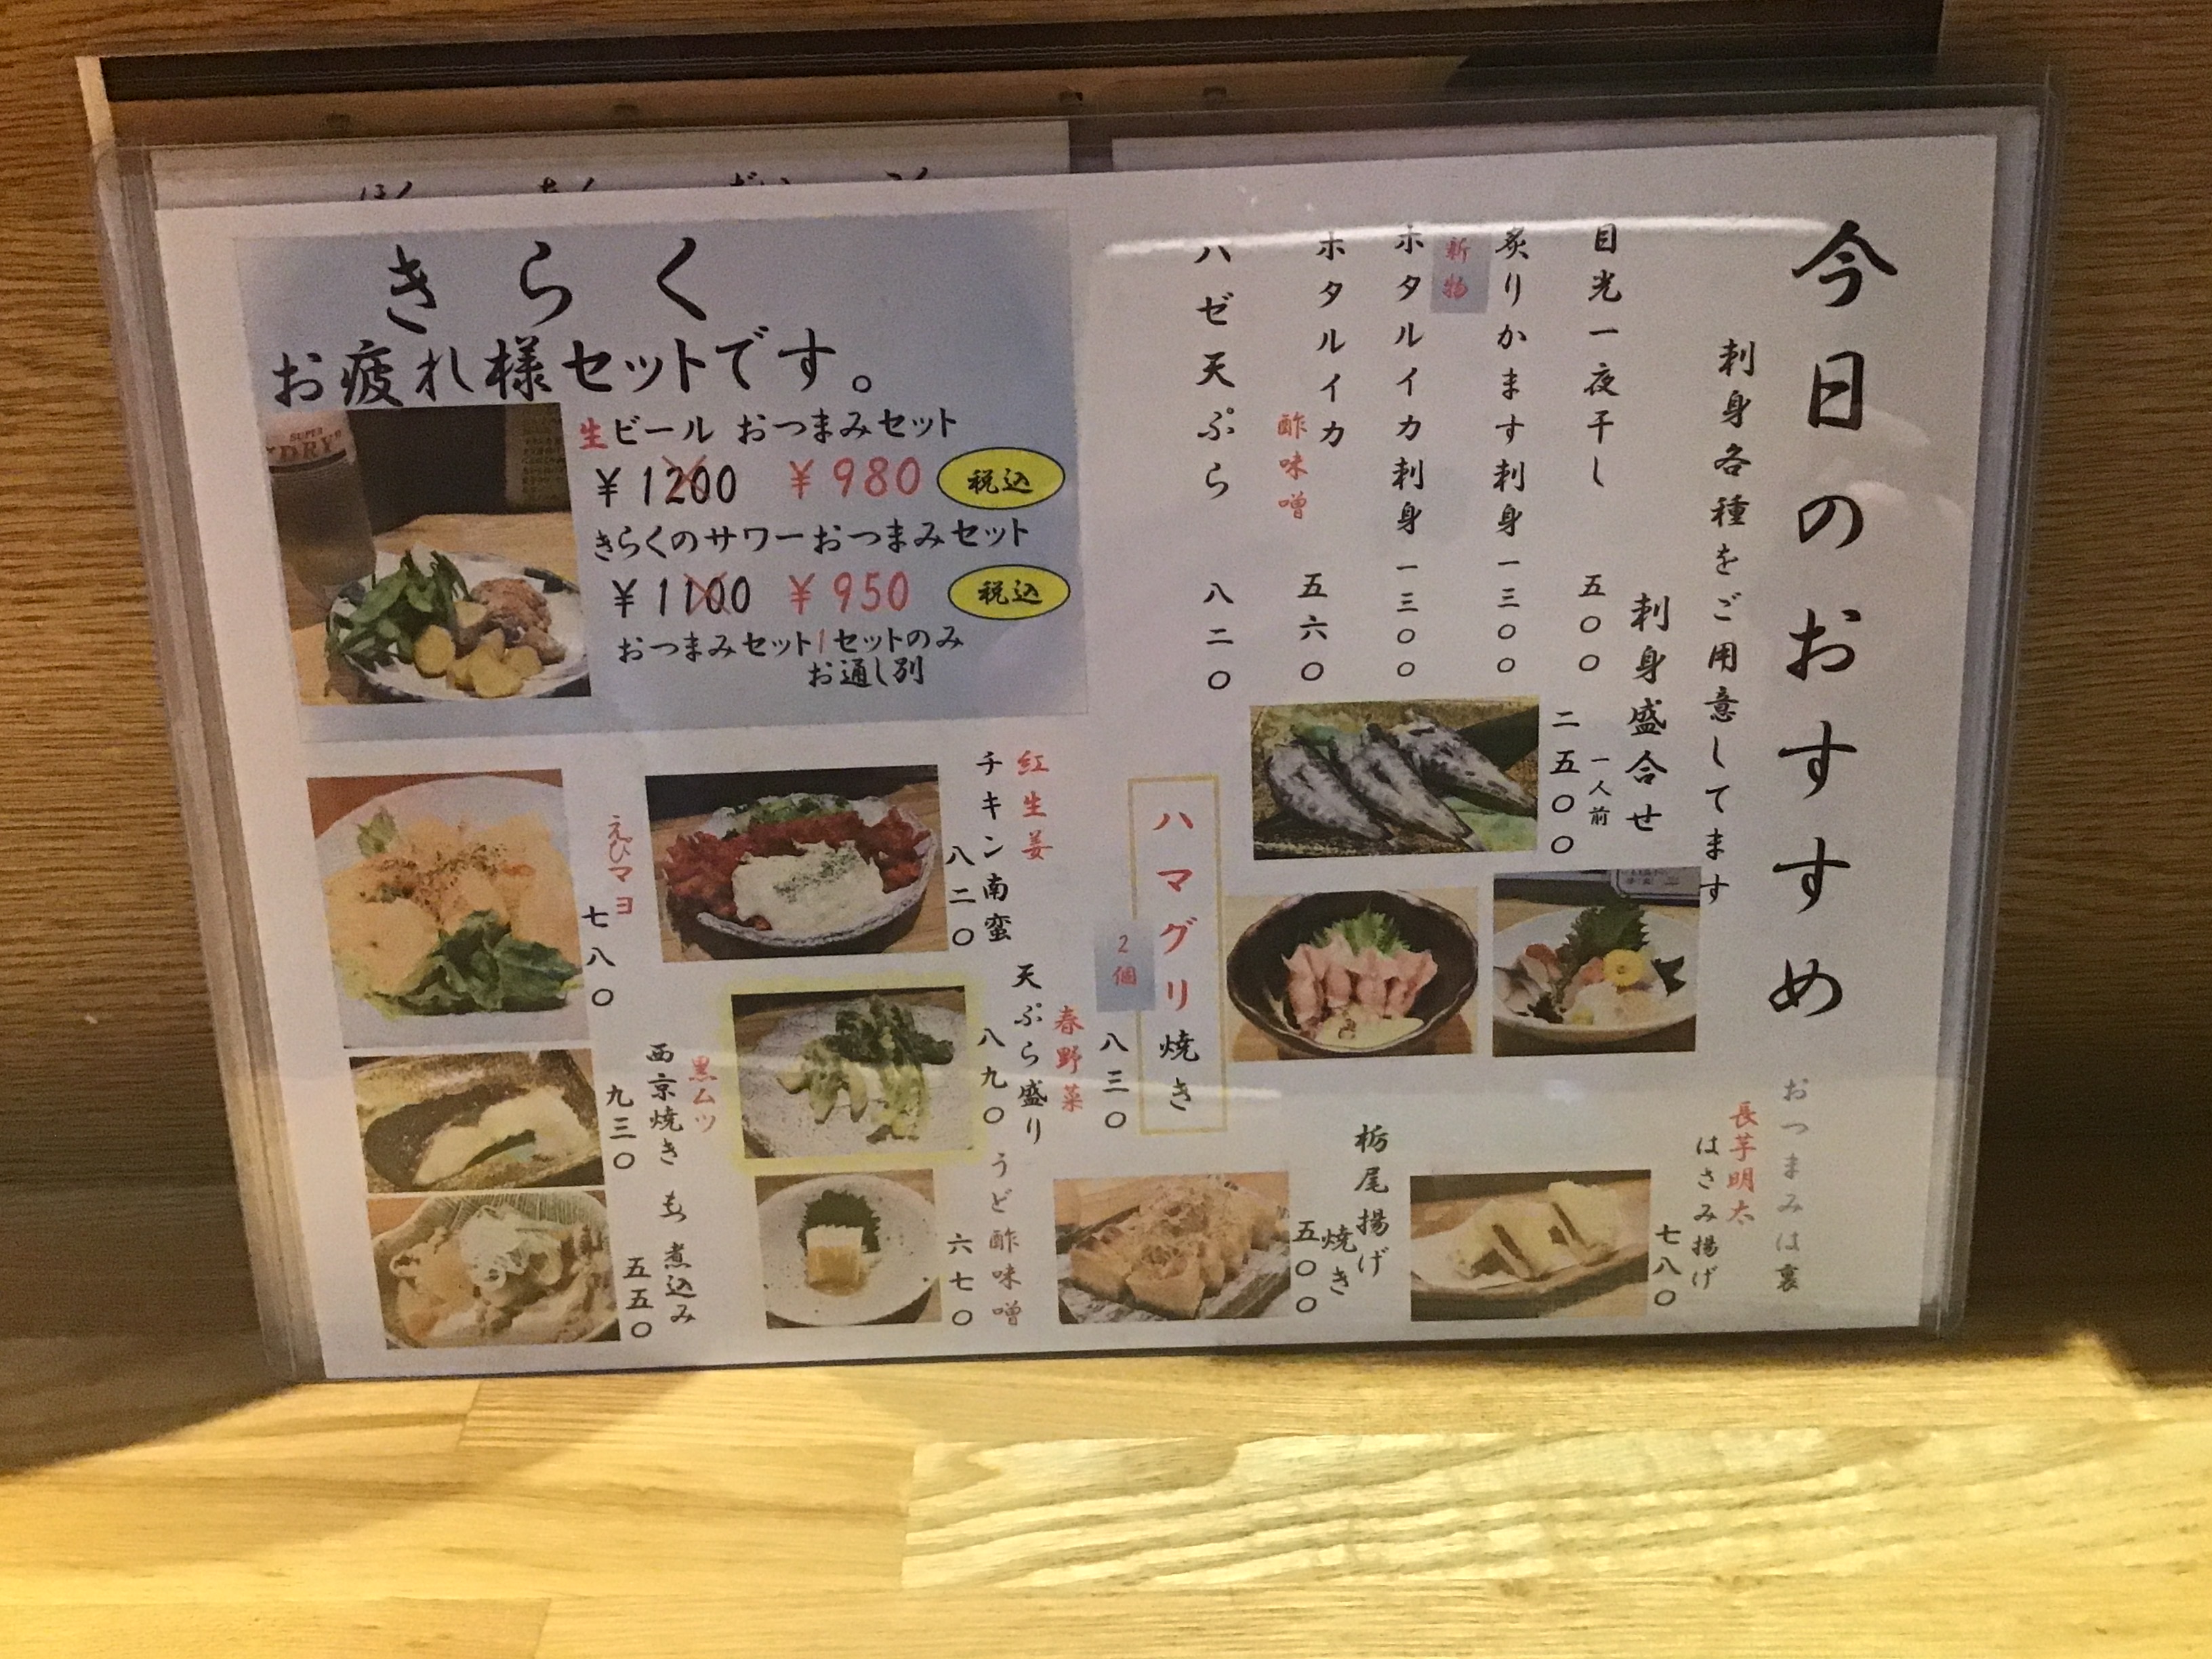 今日のおすすめ
刺身各種をご用意してます
刺身盛合せ
一人前
二五〇〇
目光一夜干し
五〇〇
炙りかます刺身
一三〇〇
新物
ホタルイカ刺身
一三〇〇
ホタルイカ
酢味噌
五六〇
ハゼ天ぷら
八二〇
おつまみは裏
長芋明太
はさみ揚げ
七八〇
栃尾揚げ
焼き
五〇〇
ハマグリ焼き
2個
八三〇
きらく
お疲れ様セットです。
SUPER
"DRY"
生ビール おつまみセット
¥1200 ¥980 税込
きらくのサワーおつまみセット
¥1100 ¥950 税込
おつまみセット1セットのみ
お通し別
紅生姜
チキン南蛮
八二〇
春野菜
天ぷら盛り
八九〇
うど酢味噌
六七〇
えびマヨ
七八〇
黒ムツ
西京焼き
九三〇
煮込み
五五〇